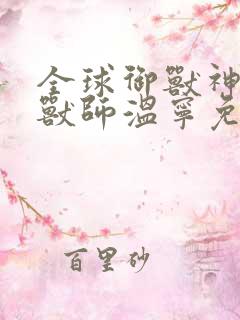 全球御獸神
獸師溫寧免
百里砂